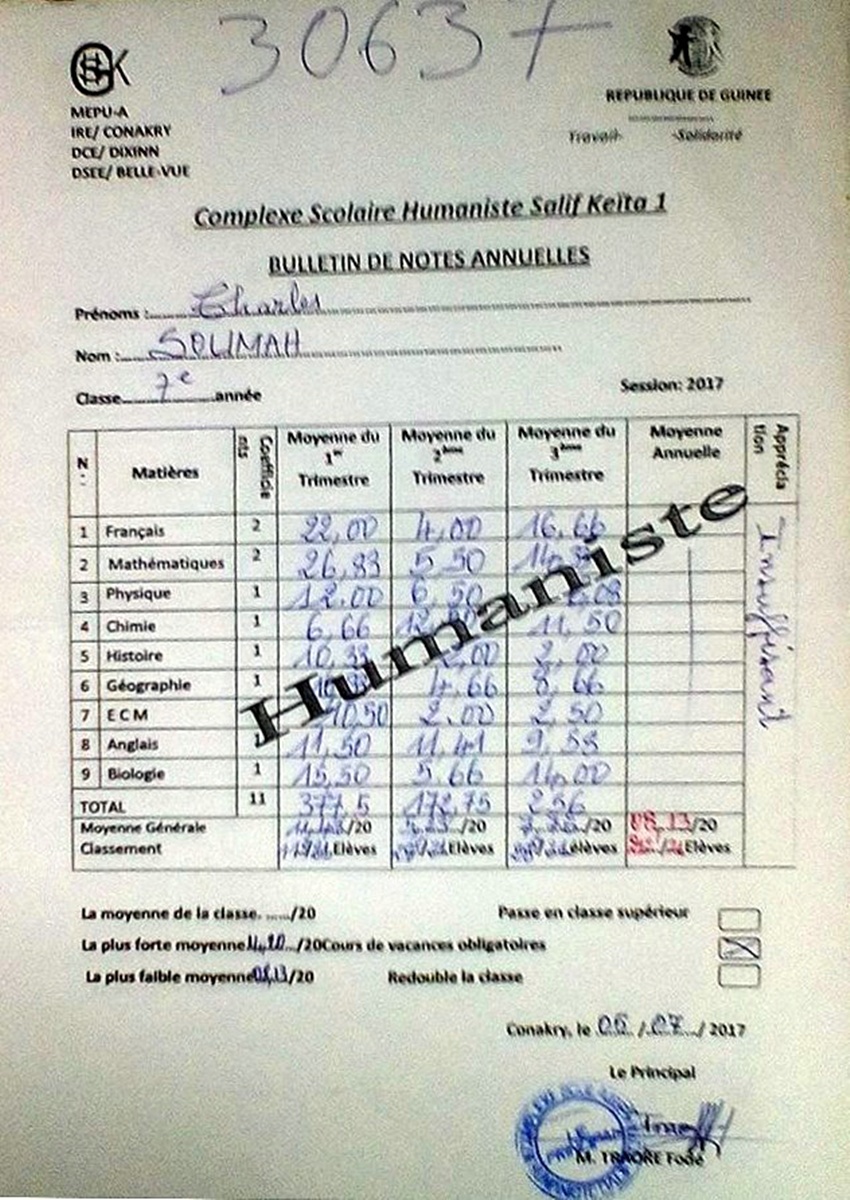 30637
CSHSK
MEPU-A
IRE/ CONAKRY
DCE/ DIXINN
DSEE/ BELLE-VUE
REPUBLIQUE DE GUINEE
Travail- -Solidarité
Complexe Scolaire Humaniste Salif Keïta 1
BULLETIN DE NOTES ANNUELLES
Prénoms : Charles
Nom : SOUMAH
Classe 7e année
Session: 2017
N: Matières Coefficients Moyenne du 1er Trimestre Moyenne du 2ème Trimestre Moyenne du 3ème Trimestre Moyenne Annuelle Appréciation
1 Français 2 22,00 4,00 16,66
2 Mathématiques 2 26,83 5,50
3 Physique 1 12,00 6,50
4 Chimie 1 6,66 11,50
5 Histoire 1 10,33 2,00 2,00
6 Géographie 1 4,66 8,66
7 ECM 10,50 2,00 2,50
8 Anglais 11,50 11,41 9,58
9 Biologie 1 15,50 5,66 14,00
Insuffisant
Humaniste
TOTAL 11 377,5 172,75 256
Moyenne Générale /20 /20 /20 08,13/20
Classement Elèves Elèves élèves Elèves
La moyenne de la classe. ....../20 Passe en classe supérieur
La plus forte moyenne /20 Cours de vacances obligatoires
La plus faible moyenne 08,13/20 Redouble la classe
Conakry, le 06 / 07 / 2017
Le Principal
M. TRAORE Fodé